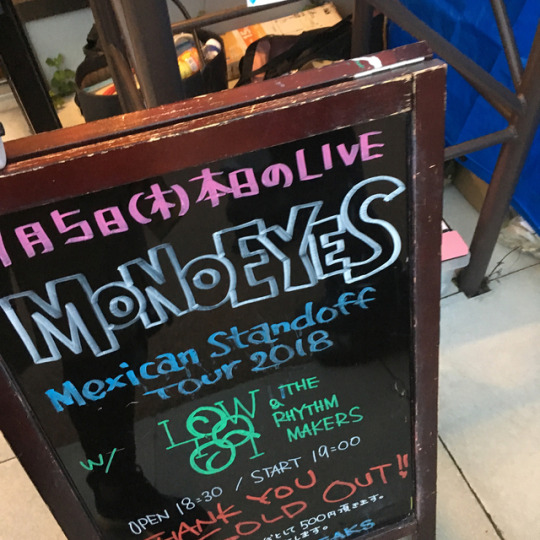 月5日(木)本日のLIVE
MONOEYES
Mexican Standoff
Tour 2018
w/ LOW IQ 01 & THE RHYTHM MAKERS
OPEN 18:30 / START 19:00
THANK YOU
SOLD OUT!!
として500円頂きます。
します。